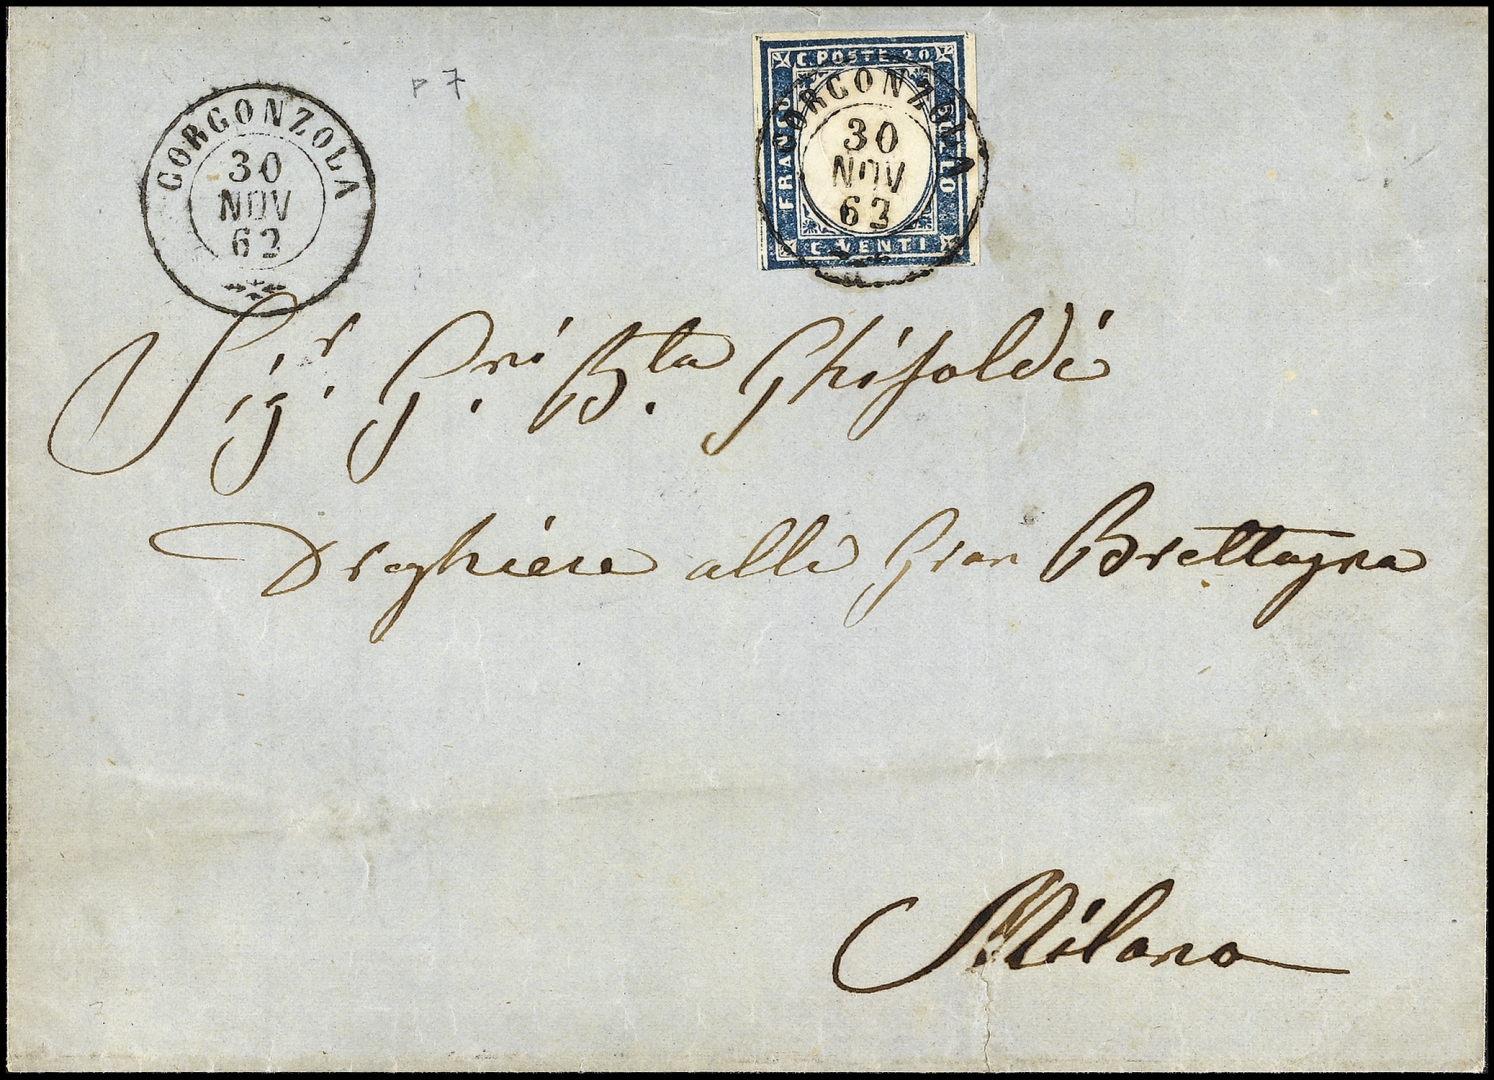 P 7
C. POSTE 20
FRANCO
BOLLO
C. VENTI
GORGONZOLA
30
NOV
62
GORGONZOLA
30
NOV
63
Sig.r G.ni B.ta Ghisoldi
Droghiere alla Gran Brettagna
Milano